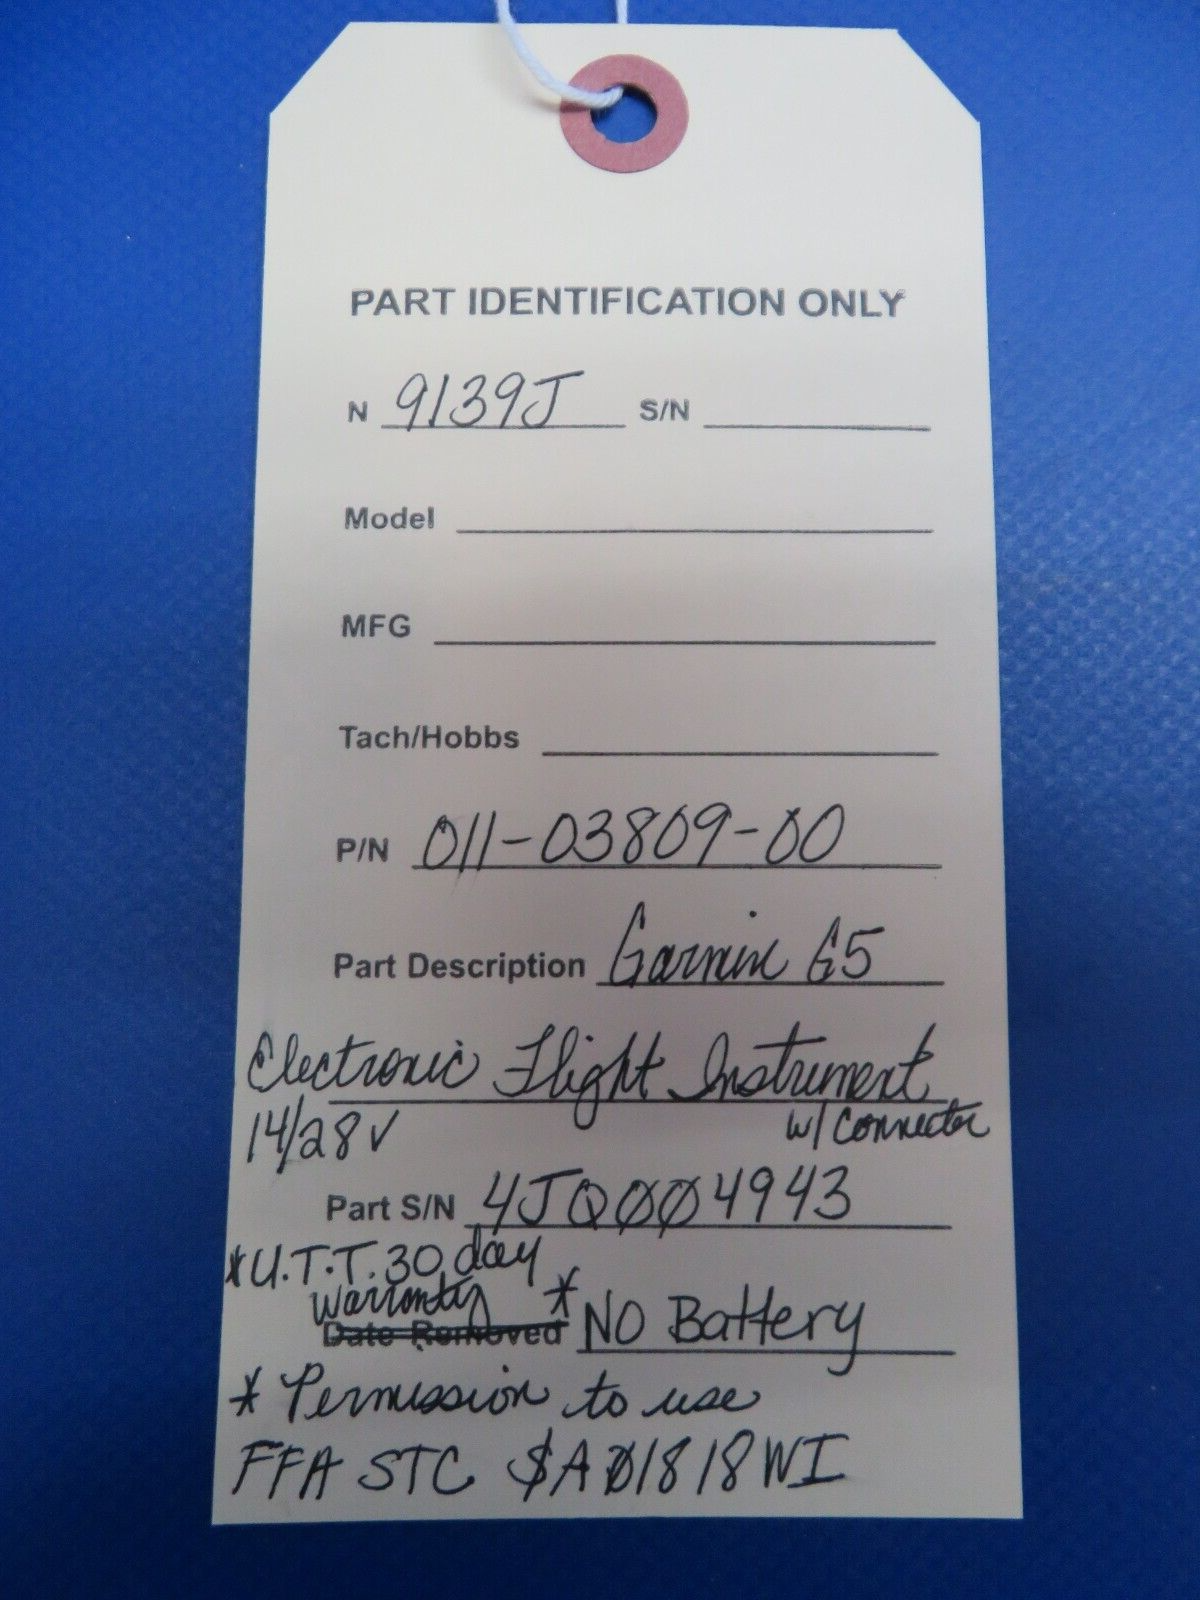 PART IDENTIFICATION ONLY
N 9139J S/N
Model
MFG
Tach/Hobbs
P/N 011-03809-00
Part Description Garmin G5
Electronic Flight Instrument
14/28V w/ Connector
Part S/N 4JQ004943
*U.T.T. 30 day
Warranty
Date Removed * NO Battery
* Permission to use
FFA STC SA01818WI